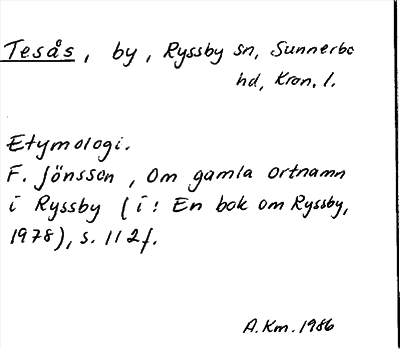 Tesås, by, Ryssby sn, Sunnerbo
hd, Kron. l.
Etymologi.
F. Jönsson, Om gamla ortnamn
i Ryssby (i: En bok om Ryssby,
1978), s. 112f.
A.Km. 1986